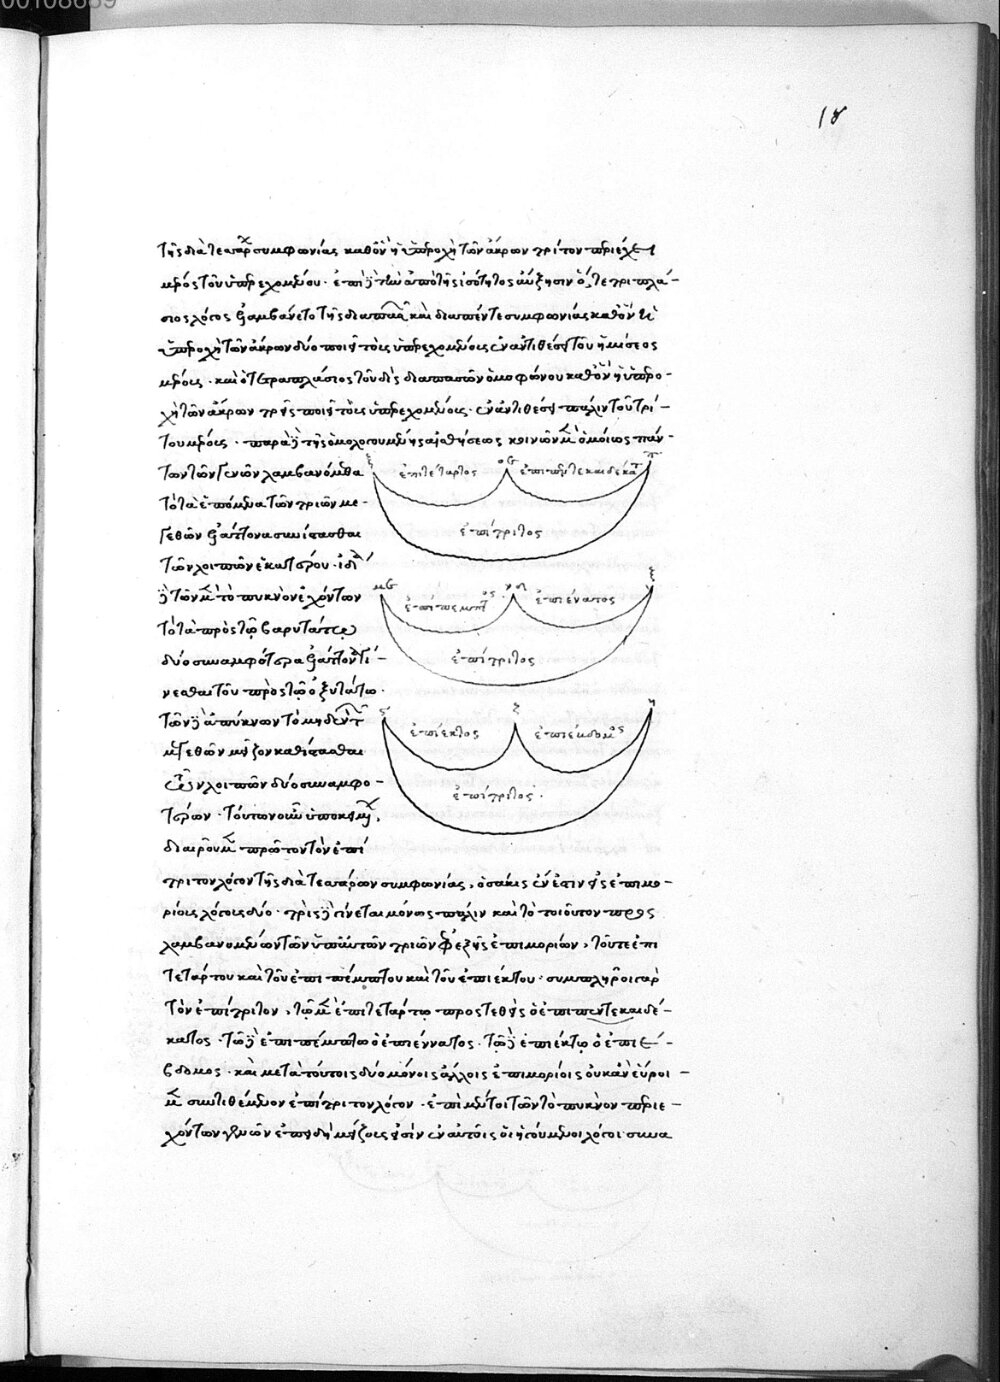 00108689
18
τῆς διὰ τεσσάρων συμφωνίας καθ' ὃν ἡ ὑπεροχὴ τῶν ἄκρων τρίτον περιέχει
μέρος τοῦ ὑπερεχομένου. ἐπὶ δὲ τὴν ἀπὸ τῆς ἰσότητος αὔξησιν ὅ, τε τριπλά-
σιος λόγος ἐλαμβάνετο τῆς διαπασῶν καὶ διαπέντε συμφωνίας καθ' ὃν ἡ
ὑπεροχὴ τῶν ἄκρων δύο ποιεῖ τοῖς ὑπερεχομένοις ἐν ἀντιθέσει τοῦ ἡμίσεος
μέρους. καὶ ὁ τετραπλάσιος τοῦ δὶς διαπασῶν ὁμοφώνου καθ' ὃν ἡ ὑπερο-
χὴ τῶν ἄκρων τρεῖς ποιεῖ τοὺς ὑπερεχομένους. ἐν ἀντιθέσει πάλιν τοῦ τρί-
του μέρους. παρὰ δὲ τῆς ὁμολογουμένης αἰσθήσεως κοινῶν μὲν ὁμοίως πάν-
των τῶν γενῶν λαμβάνομεν
τὸ τὰ ἑπόμενα τῶν τριῶν με-
γεθῶν ἐλάττονα συνίστασθαι
τῶν λοιπῶν ἑκατέρου. ἰδίᾳ
δὲ τῶν μὲν τὸ πυκνὸν ἐχόντων
τὸ τὰ πρὸς τῷ βαρυτάτῳ
δύο συναμφότερα ἐλάττονα γί-
νεσθαι τοῦ πρὸς τῷ ὀξυτάτῳ.
τῶν δὲ ἀπύκνων τὸ μηδὲν τῶν
μεγεθῶν μεῖζον καθίστασθαι
τῶν λοιπῶν δύο συναμφο-
τέρων. τούτων οὖν ὑποκειμένων,
διαιροῦμεν πρῶτον τὸν ἐπί
τριτον λόγον τῆς διὰ τεσσάρων συμφωνίας, ὁσάκις ἔνεστιν εἰς ἐπιμο-
ρίους λόγους δύο. τρὶς δὲ γίνεται μόνως πάλιν καὶ τὸ τοιοῦτον προς
λαμβανομένων τῶν ὑπ' αὐτὸν τριῶν ἐφεξῆς ἐπιμορίων, τοῦ τε ἐπι
τετάρτου καὶ τοῦ ἐπιπέμπτου καὶ τοῦ ἐπιέκτου. συμπληροῖ γὰρ
τὸν ἐπίτριτον, τῷ μὲν ἐπιτετάρτῳ προστεθεὶς ὁ ἐπιπεντεκαιδέ-
κατος. τῷ δὲ ἐπιπέμπτῳ ὁ ἐπιέννατος. τῷ δὲ ἐπιέκτῳ ὁ ἐπιέ-
βδομος. καὶ μετὰ τούτους δύο μόνοις ἄλλοις ἐπιμορίοις οὐκ ἂν εὕροι
μεν συντιθέμενον ἐπίτριτον λόγον. ἐπὶ μέντοι τῶν τὸ πυκνὸν περιε-
χόντων γενῶν ἐπειδὴ μείζους εἰσὶν ἐν αὐτοῖς οἱ ἡγούμενοι λόγοι συνα
ξ οϛ π
ἐπιτέταρτος ἐπιπεντεκαιδέκατ
ἐπίτριτος
ξ
ἐπίπεμπτος ἐπιένατος
ἐπίτριτος
ἐπιέκτος ἐπιέβδομος
ἐπίτριτος.